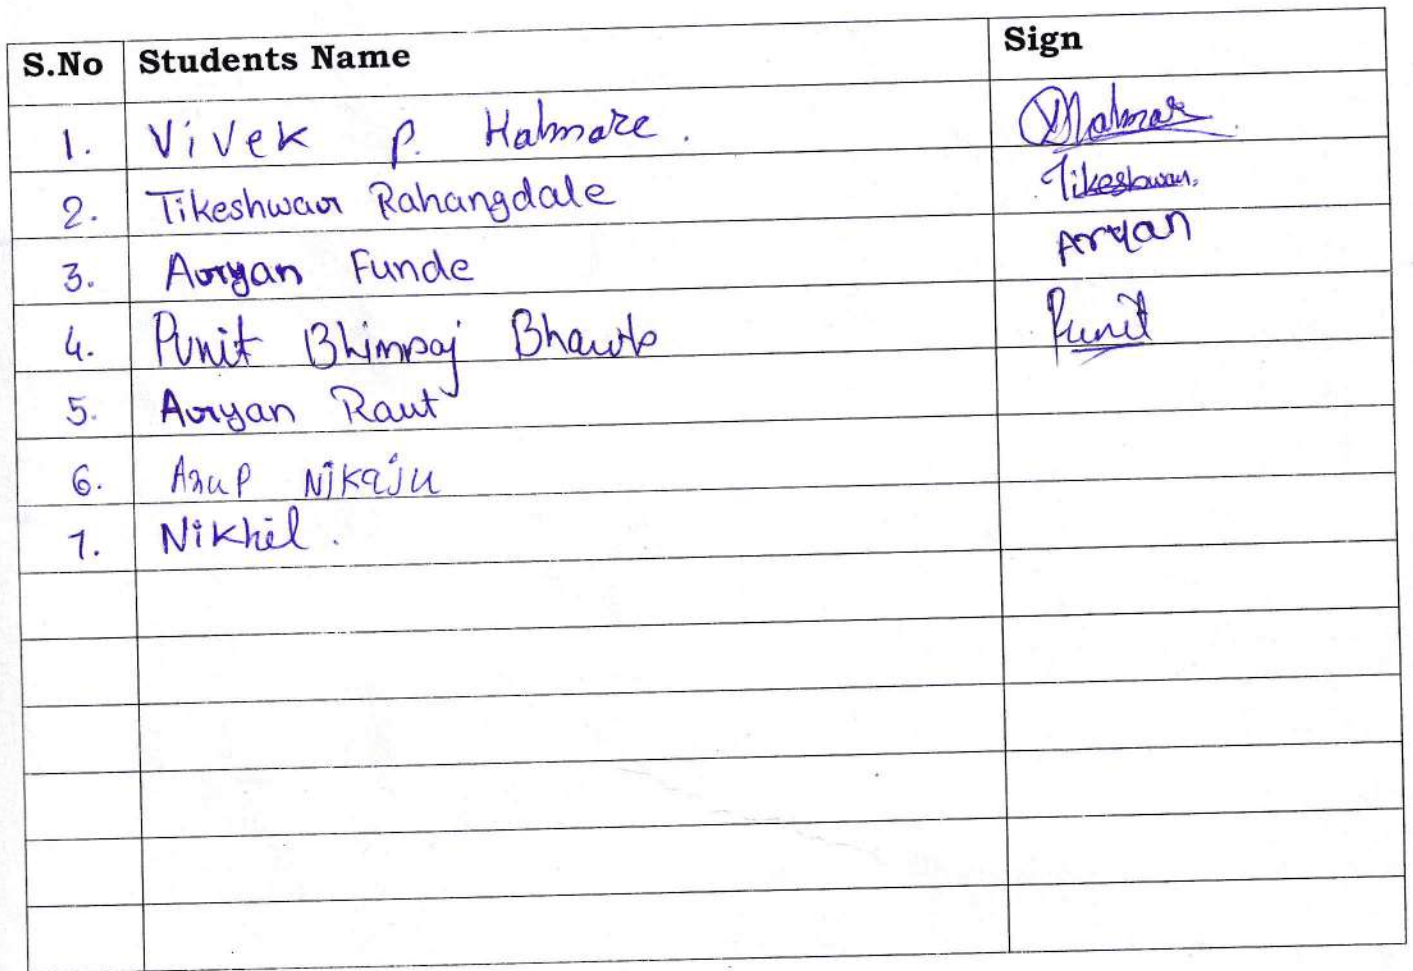 S.No Students Name Sign
1. Vivek P. Halmare. Halmare
2. Tikeshwar Rahangdale Tikeshwar.
3. Aryan Funde Aryan
4. Punit Bhimraj Punit
5. Aryan Raut
6. Nikaju
7. Nikhil.